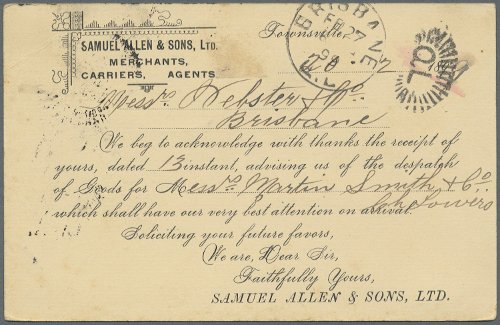 SAMUEL ALLEN & SONS, LTD.
MERCHANTS,
CARRIERS, AGENTS
Townsville,
BRISBANE
27
Messrs Webster & Co
Brisbane
We beg to acknowledge with thanks the receipt of
yours, dated 13 instant, advising us of the despatch
of Goods for Messrs Martin Smith & Co
Ch Towers
which shall have our very best attention on arrival.
Soliciting your future favors,
We are, Dear Sir,
Faithfully Yours,
SAMUEL ALLEN & SONS, LTD.